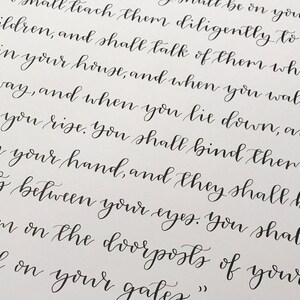 shall be on you
shall teach them diligently to
ildren, and shall talk of them wh
in your house, and when you wal
way, and when you lie down, a
you rise. You shall bind them
your hand, and they shall b
between your eyes. You shal
m on the doorposts of your
on your gates."